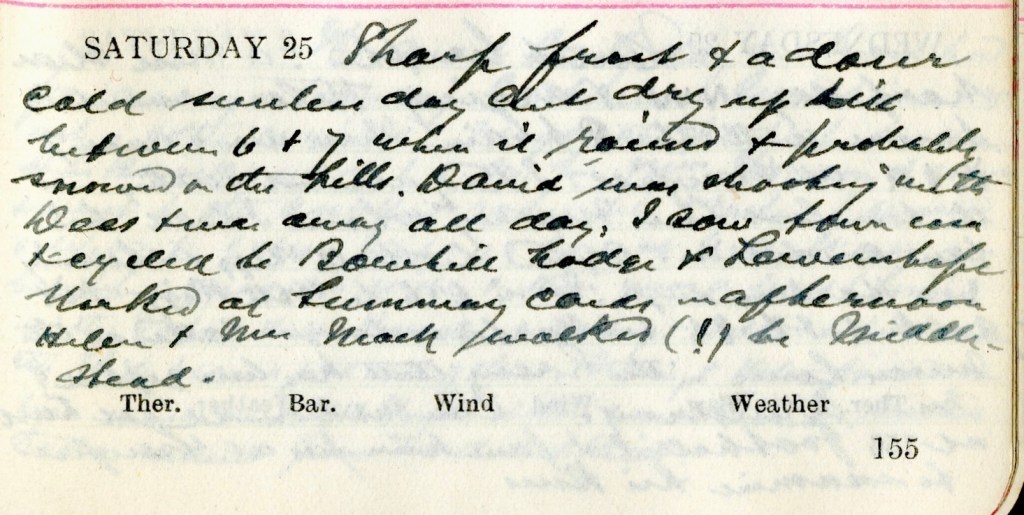 SATURDAY 25 Sharp frost & a dour
cold sunless day but dry up till
between 6 & 7 when it rained & probably
snowed on the hills. David was shooting with
Wess & was away all day. I saw town
& cycled to Bowhill Lodge & Lewenshope
Worked at Summary Cards in afternoon
Helen & Mrs. walked (!) to Middle-
stead.
Ther. Bar. Wind Weather
155